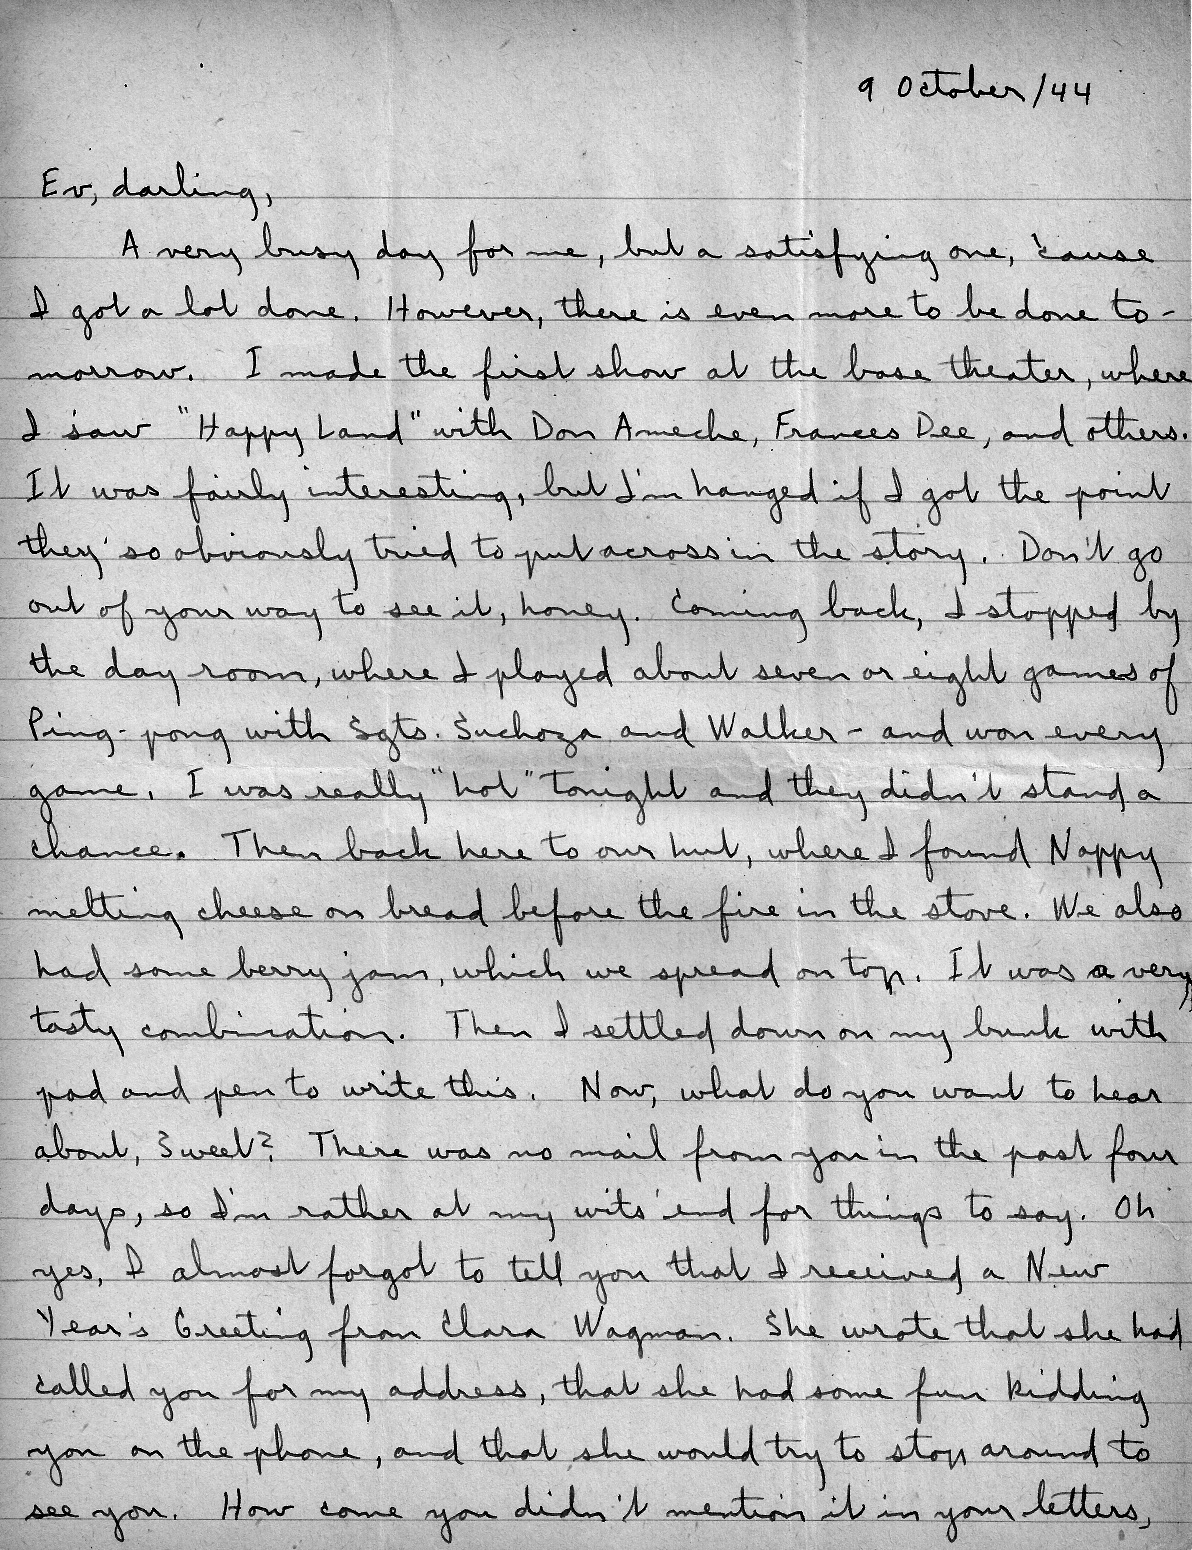 9 October/44
Ev, darling,
A very busy day for me, but a satisfying one, 'cause
I got a lot done. However, there is even more to be done to-
morrow. I made the first show at the base theater, where
I saw "Happy Land" with Don Ameche, Frances Dee, and others.
It was fairly interesting, but I'm hanged if I got the point
they so obviously tried to put across in the story. Don't go
out of your way to see it, honey. Coming back, I stopped by
the day room, where I played about seven or eight games of
Ping-pong with Sgts. Suchoza and Walker - and won every
game. I was really "hot" tonight and they didn't stand a
chance. Then back here to our hut, where I found Nappy
melting cheese on bread before the fire in the stove. We also
had some berry jam, which we spread on top. It was a very
tasty combination. Then I settled down on my bunk with
pad and pen to write this. Now, what do you want to hear
about, Sweet? There was no mail from you in the past four
days, so I'm rather at my wits' end for things to say. Oh
yes, I almost forgot to tell you that I received a New
Year's Greeting from Clara Wagman. She wrote that she had
called you for my address, that she had some fun kidding
you on the phone, and that she would try to stop around to
see you. How come you didn't mention it in your letters,